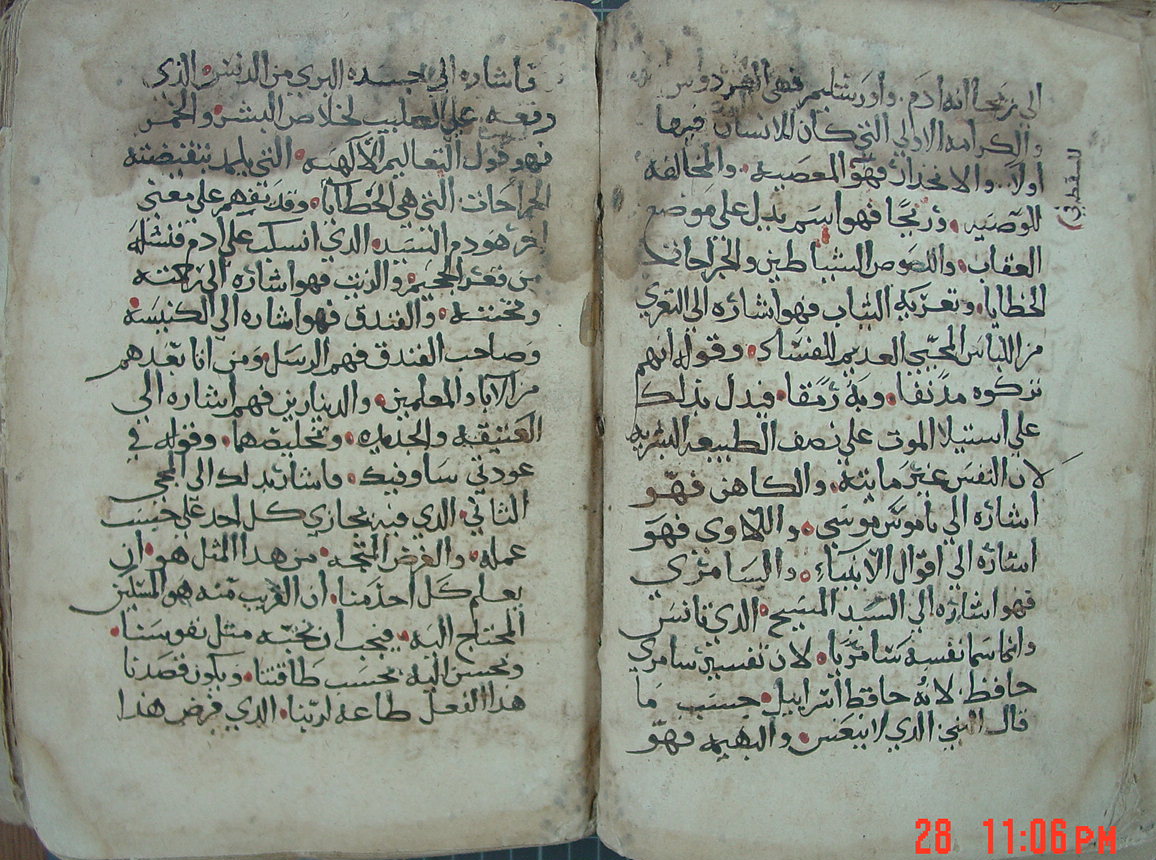 الى يريحا انه ادم. واورشليم فهى الفردوس
والكرامه الاولى التي كان الانسان فيها
اولاً. والانحدار فهو المعصيه. والمخالفه
للوصيه. وريحًا فهوا اسم يدل على موضع
العقاب. واللصوص الشياطين والجراحات
الخطايا. وتعزيه الثياب فهوا اشاره الى التعري
من اللباس المجيي العديم الفساد. وقوله انهم
تركوه مدنفا. وبه رمقا. فيدل بذلك
على استيلا الموت على نصف الطبيعه البشريه
لان النفس غير مايته. والكاهن فهو
اشاره الي ناموس موسى. واللاوى فهو
اشاره الى اقوال الانبياء. والسامري
فهو اشاره الى السيد المسيح. الدي تانس
وانما سما نفسه سامريا. لان تفسير سامري
حافظ. لانه حافظ اسراييل. حسب ما
قال النبي الدي لا ينعس. والبهيمه فهو
فاشاره الي جسده البري من الدنس. الذي
رفعه على الصليب لخلاص البشر. والخمر
فهو قول التعاليم الالهيه. التي
الجراحات. التي هي الخطايا. وقد تفهم على معنى
اخر هو دم السيد. الدي انسكب على ادم فنشله
من قعر الجحيم. والزيت فهوا اشاره الى
ومحبته. والفندق فهوا اشاره الى الكنيسه
وصاحب الفندق فهم الرسل. ومن اتا بعدهم
من الابا والمعلمين. والدينارين فهم اشاره الى
العتيقه والجديده. وتخليصهما. وقوله في
عودتي ساوفيك. فاشار بدلك الى المجي
الثاني. الدي فيه يجازي كل احد على حسب
عمله. والغرض المتجه. من هدا المثل هو. ان
يعلم كل احد منا. ان القريب منه هو المسكين
المحتاج اليه. فيجب ان نحبه مثل نفوسنا.
ونحسن اليه بحسب طاقتنا. ويكون قصدنا
هدا الفعل طاعه لربنا. الدي فرض هدا
28 11:06 PM